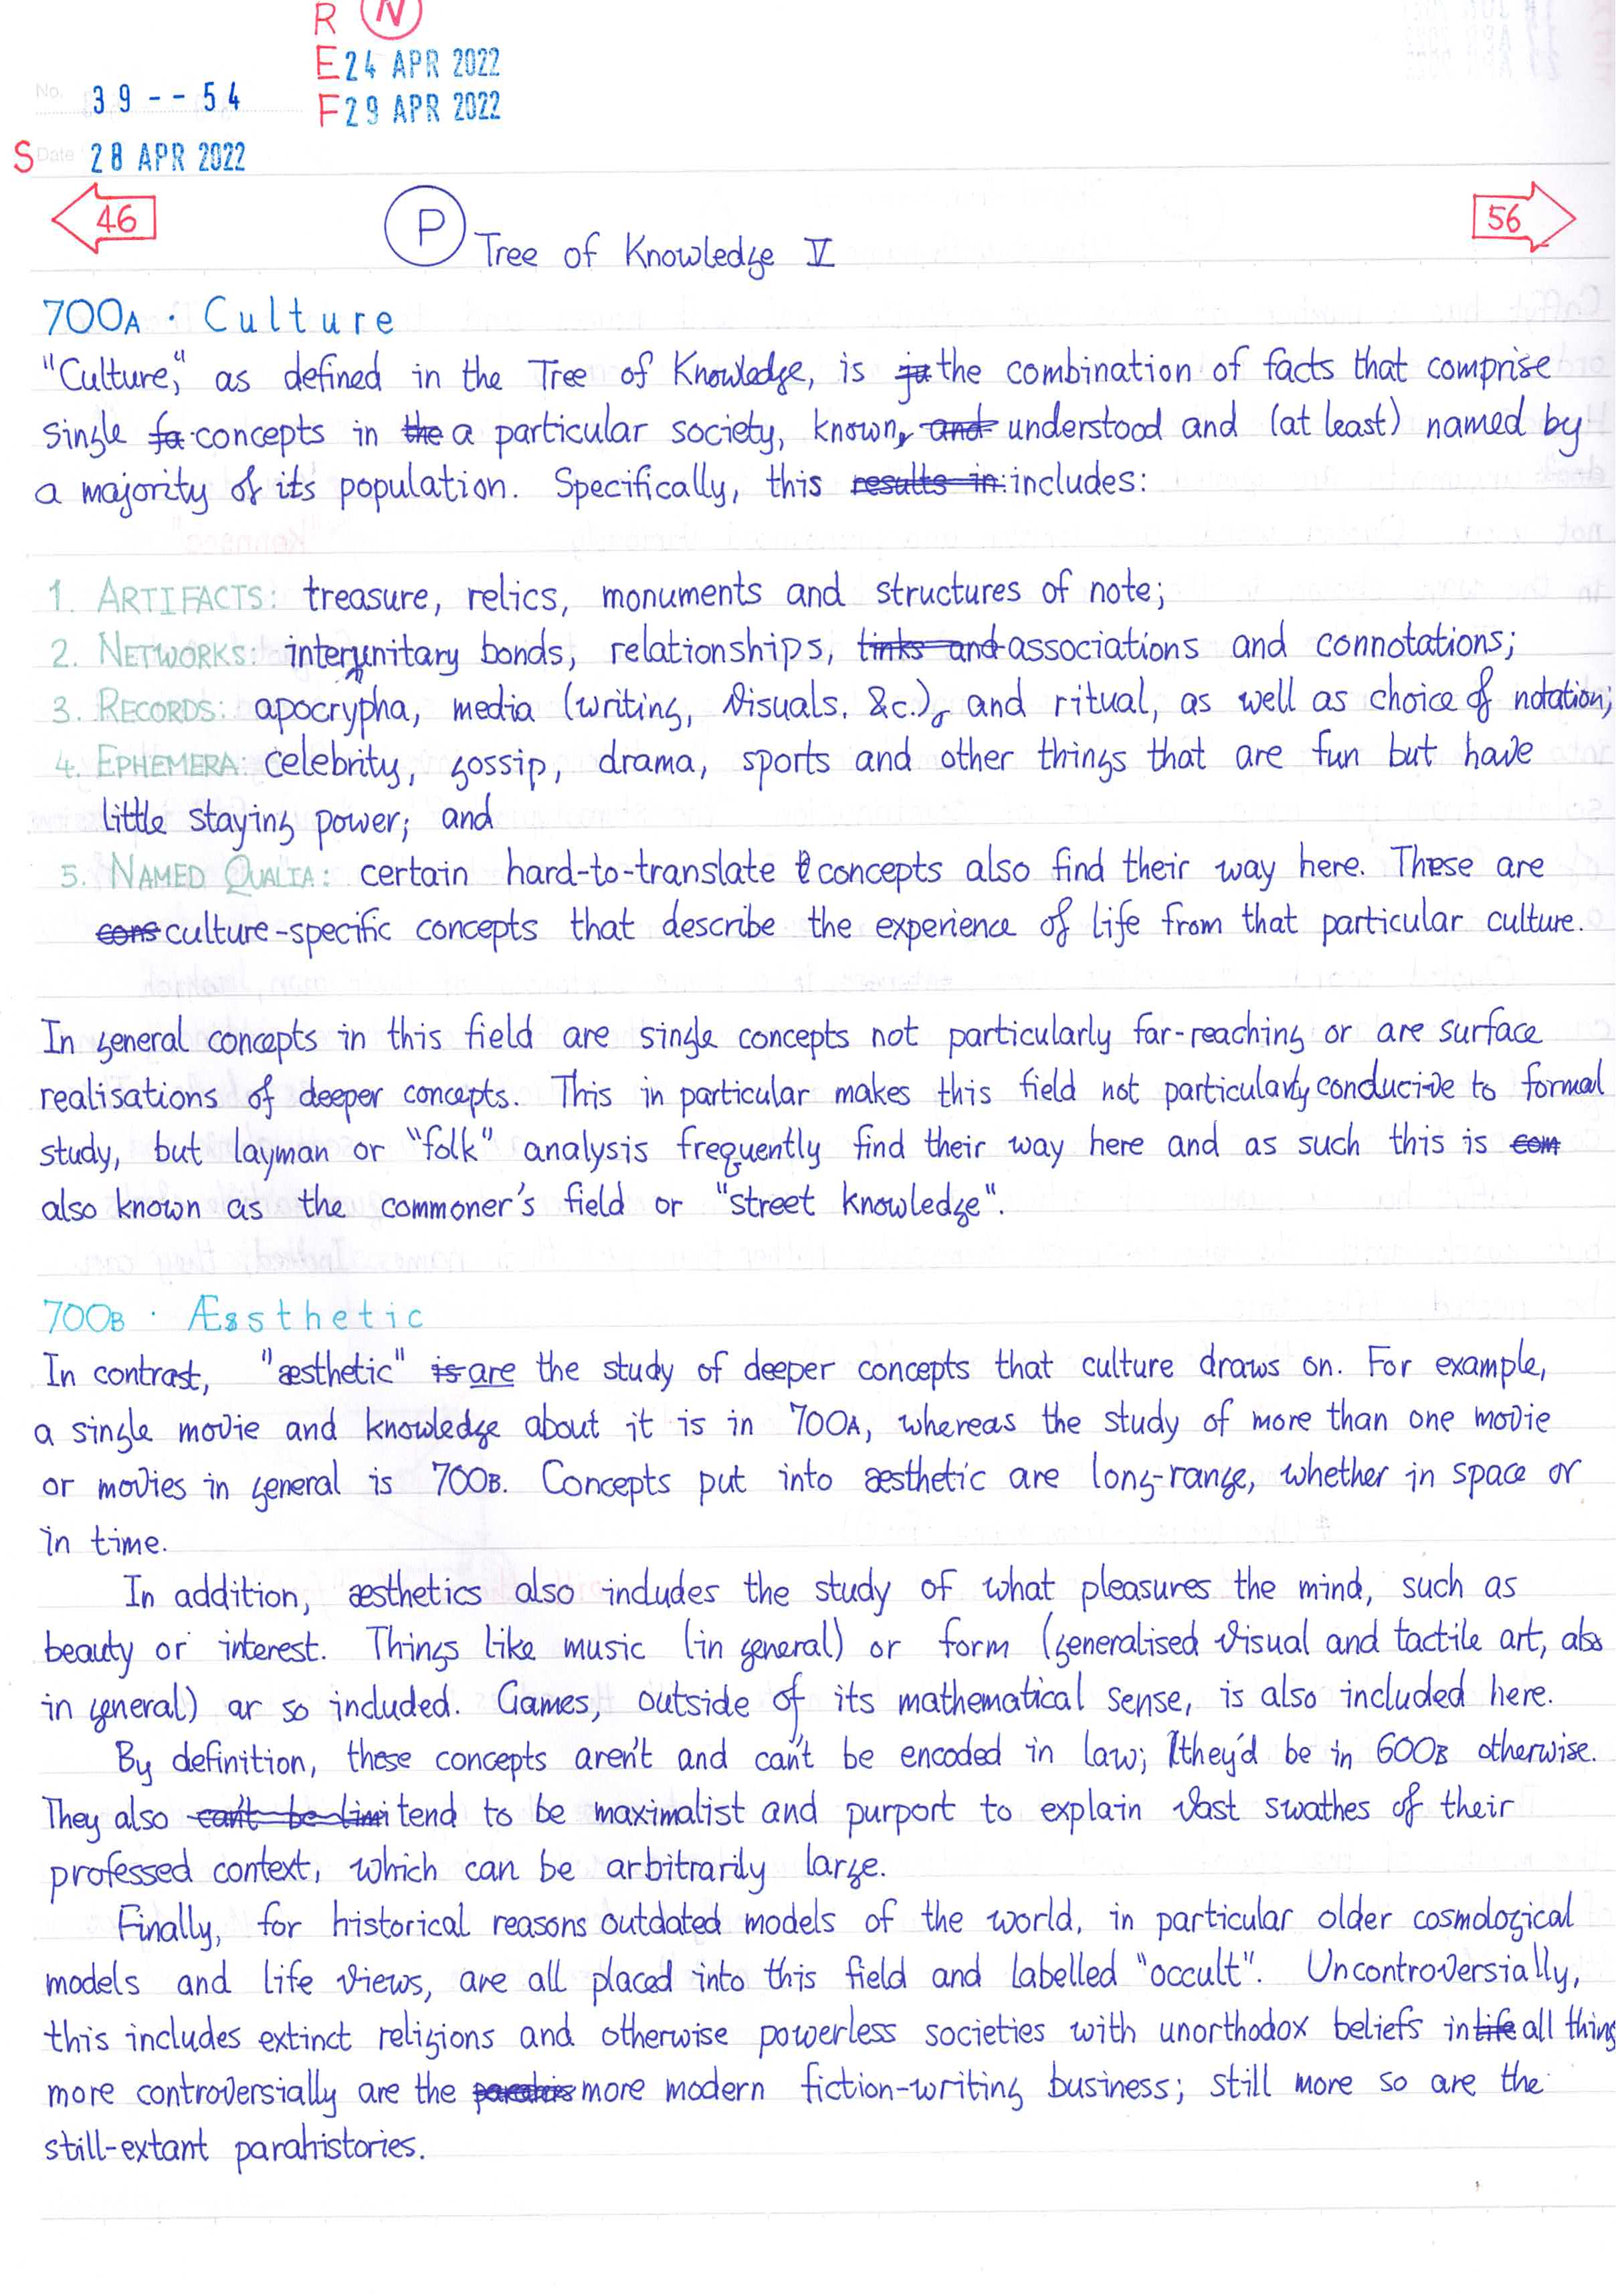 R N
E 24 APR 2022
No. 39 -- 54
F 29 APR 2022
S Date 28 APR 2022
46
P Tree of Knowledge V
56
700A · Culture
"Culture," as defined in the Tree of Knowledge, is ju the combination of facts that comprise
single fa concepts in the a particular society, known, and understood and (at least) named by
a majority of its population. Specifically, this results in: includes:
1. ARTIFACTS: treasure, relics, monuments and structures of note;
2. NETWORKS: interunitary bonds, relationships, links and associations and connotations;
3. RECORDS: apocrypha, media (writing, visuals, &c.), and ritual, as well as choice of notation;
4. EPHEMERA: celebrity, gossip, drama, sports and other things that are fun but have
little staying power; and
5. NAMED QUALIA: certain hard-to-translate concepts also find their way here. These are
cons culture-specific concepts that describe the experience of life from that particular culture.
In general concepts in this field are single concepts not particularly far-reaching or are surface
realisations of deeper concepts. This in particular makes this field not particularly conducive to formal
study, but layman or "folk" analysis frequently find their way here and as such this is com
also known as the commoner's field or "street knowledge".
700B · Æsthetic
In contrast, "æsthetic" is are the study of deeper concepts that culture draws on. For example,
a single movie and knowledge about it is in 700A, whereas the study of more than one movie
or movies in general is 700B. Concepts put into æsthetic are long-range, whether in space or
in time.
In addition, æsthetics also includes the study of what pleasures the mind, such as
beauty or interest. Things like music (in general) or form (generalised visual and tactile art, also
in general) ar so included. Games, outside of its mathematical sense, is also included here.
By definition, these concepts aren't and can't be encoded in law; they'd be in 600B otherwise.
They also can't be limi tend to be maximalist and purport to explain vast swathes of their
professed context, which can be arbitrarily large.
Finally, for historical reasons outdated models of the world, in particular older cosmological
models and life views, are all placed into this field and labelled "occult". Uncontroversially,
this includes extinct religions and otherwise powerless societies with unorthodox beliefs in life all things
more controversially are the more modern fiction-writing business; still more so are the
still-extant parahistories.